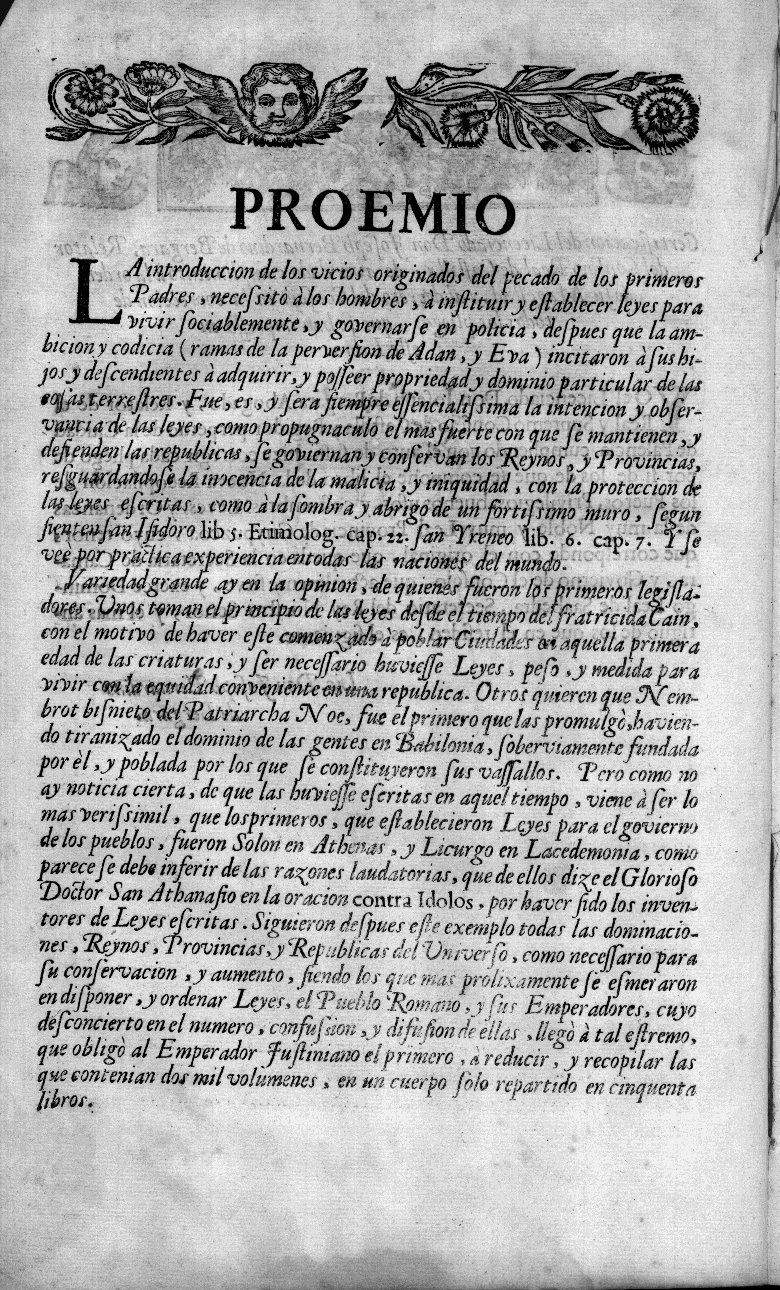 PROEMIO
LA introduccion de los vicios originados del pecado de los primeros
Padres, necessitò à los hombres, à instituir y establecer leyes para
vivir sociablemente, y governarse en policia, despues que la am-
bicion y codicia (ramas de la perversion de Adan, y Eva) incitaron à sus hi-
jos y descendientes à adquirir, y posseer propriedad y dominio particular de las
cosas terrestres. Fue, es, y sera siempre essencialissima la intencion y obser-
vancia de las leyes, como propugnaculo el mas fuerte con que se mantienen, y
defienden las republicas, se goviernan y conservan los Reynos, y Provincias,
resguardandose la inocencia de la malicia, y iniquidad, con la proteccion de
las leyes escritas, como à la sombra y abrigo de un fortissimo muro, segun
sienten san Isidoro lib 5. Etimolog. cap. 22. san Yreneo lib. 6. cap. 7. Y se
vee por practica experiencia en todas las naciones del mundo.
Variedad grande ay en la opinion, de quienes fueron los primeros legisla-
dores. Unos toman el principio de las leyes desde el tiempo del fratricida Cain,
con el motivo de haver este comenzado à poblar Ciudades en aquella primera
edad de las criaturas, y ser necessario huviesse Leyes, peso, y medida para
vivir con la equidad conveniente en una republica. Otros quieren que Nem-
brot bisnieto del Patriarcha Noe, fue el primero que las promulgò, havien-
do tiranizado el dominio de las gentes en Babilonia, soberviamente fundada
por èl, y poblada por los que se constituyeron sus vassallos. Pero como no
ay noticia cierta, de que las huviesse escritas en aquel tiempo, viene à ser lo
mas verissimil, que los primeros, que establecieron Leyes para el govierno
de los pueblos, fueron Solon en Athenas, y Licurgo en Lacedemonia, como
parece se debe inferir de las razones laudatorias, que de ellos dize el Glorioso
Doctor San Athanasio en la oracion contra Idolos, por haver sido los inven-
tores de Leyes escritas. Siguieron despues este exemplo todas las dominacio-
nes, Reynos, Provincias, y Republicas del Universo, como necessario para
su conservacion, y aumento, siendo los que mas prolixamente se esmeraron
en disponer, y ordenar Leyes, el Pueblo Romano, y sus Emperadores, cuyo
desconcierto en el numero, confussion, y difusion de ellas, llegò à tal estremo,
que obligò al Emperador Justiniano el primero, à reducir, y recopilar las
que contenian dos mil volumenes, en un cuerpo solo repartido en cinquenta
libros.